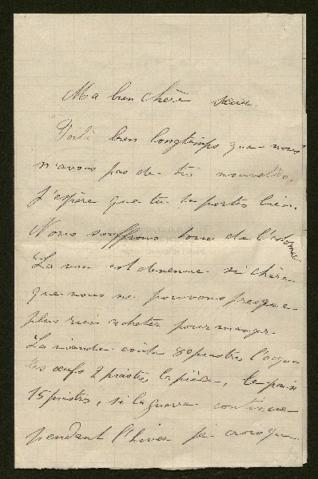 Ma bien chère sœur
Voilà bien longtemps que nous
n'avons pas de tes nouvelles,
J'espère que tu te portes bien.
Nous souffrons tous de l'estomac
La vie est devenue si chère
que nous ne pouvons presque
plus rien acheter pour manger.
La viande coûte 80 piastres l'oque
les œufs 2 piastres la pièce, le pain
15 piastres, si la guerre continue
pendant l'hiver je crois que